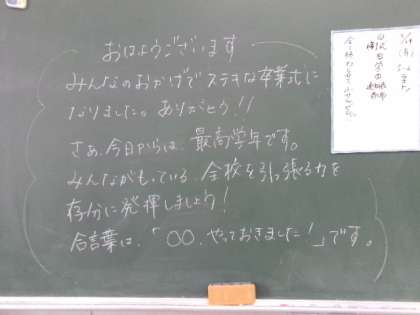 おはようございます
みんなのおかげでステキな卒業式に
なりました。ありがとう!!
さあ、今日からは、最高学年です。
みんながもっている、全校を引っ張る力を
存分に発揮しましょう!
合言葉は、「〇〇、やっておきました!」です。